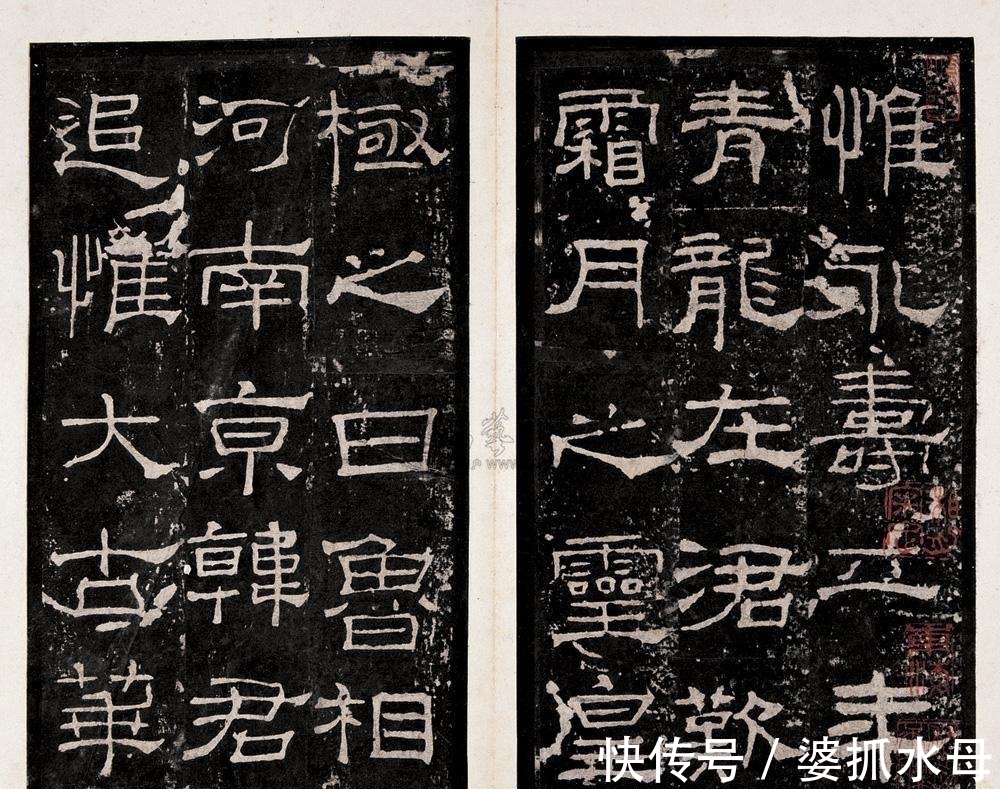 惟永壽二年
青龍在涒歎
霜月之靈皇
極之日魯相
河南京韓君
追惟大古華
快传号 / 婆抓水母